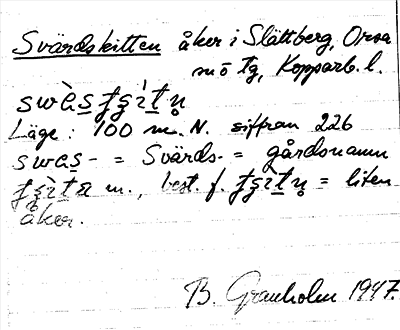 Svärdskitten åker i Slättberg, Orsa
sn ö tg, Kopparb. l.
Läge: 100 m. N. siffran 226
swæs- = Svärds- = gårdsnamn
m., best. f. = liten
åker.
B. Granholm 1947.